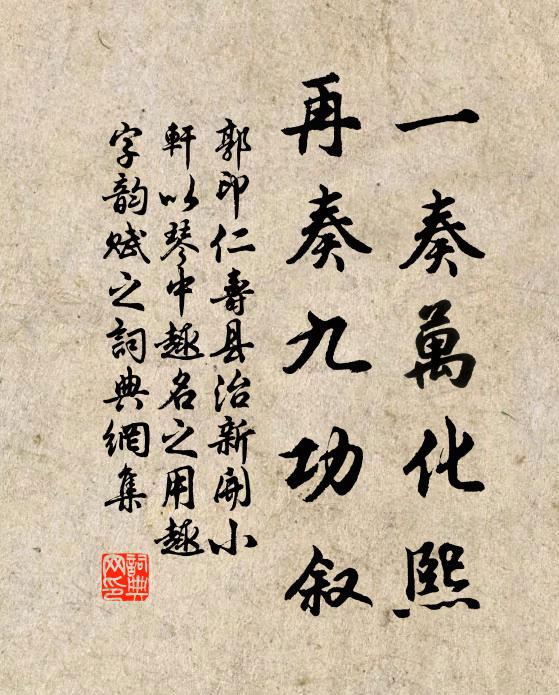 一奏萬化熙
再奏九功叙
郭印仁壽县治新開小
軒以琴中趣名之用趣
字韵赋之詞典網集
詞典網印